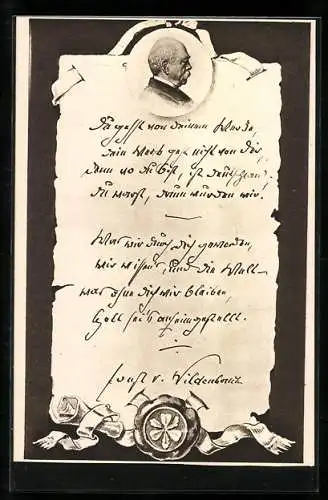 Du gehst von deinem Werke,
dein Werk geht nicht von dir,
denn wo du bist, ist Deutschland,
du warst, drum wurden wir!
Was wir durch dich geworden,
wir wissen's und die Welt —
was ohne dich wir bleiben,
Gott sei's anheimgestellt.
Ernst v. Wildenbruch